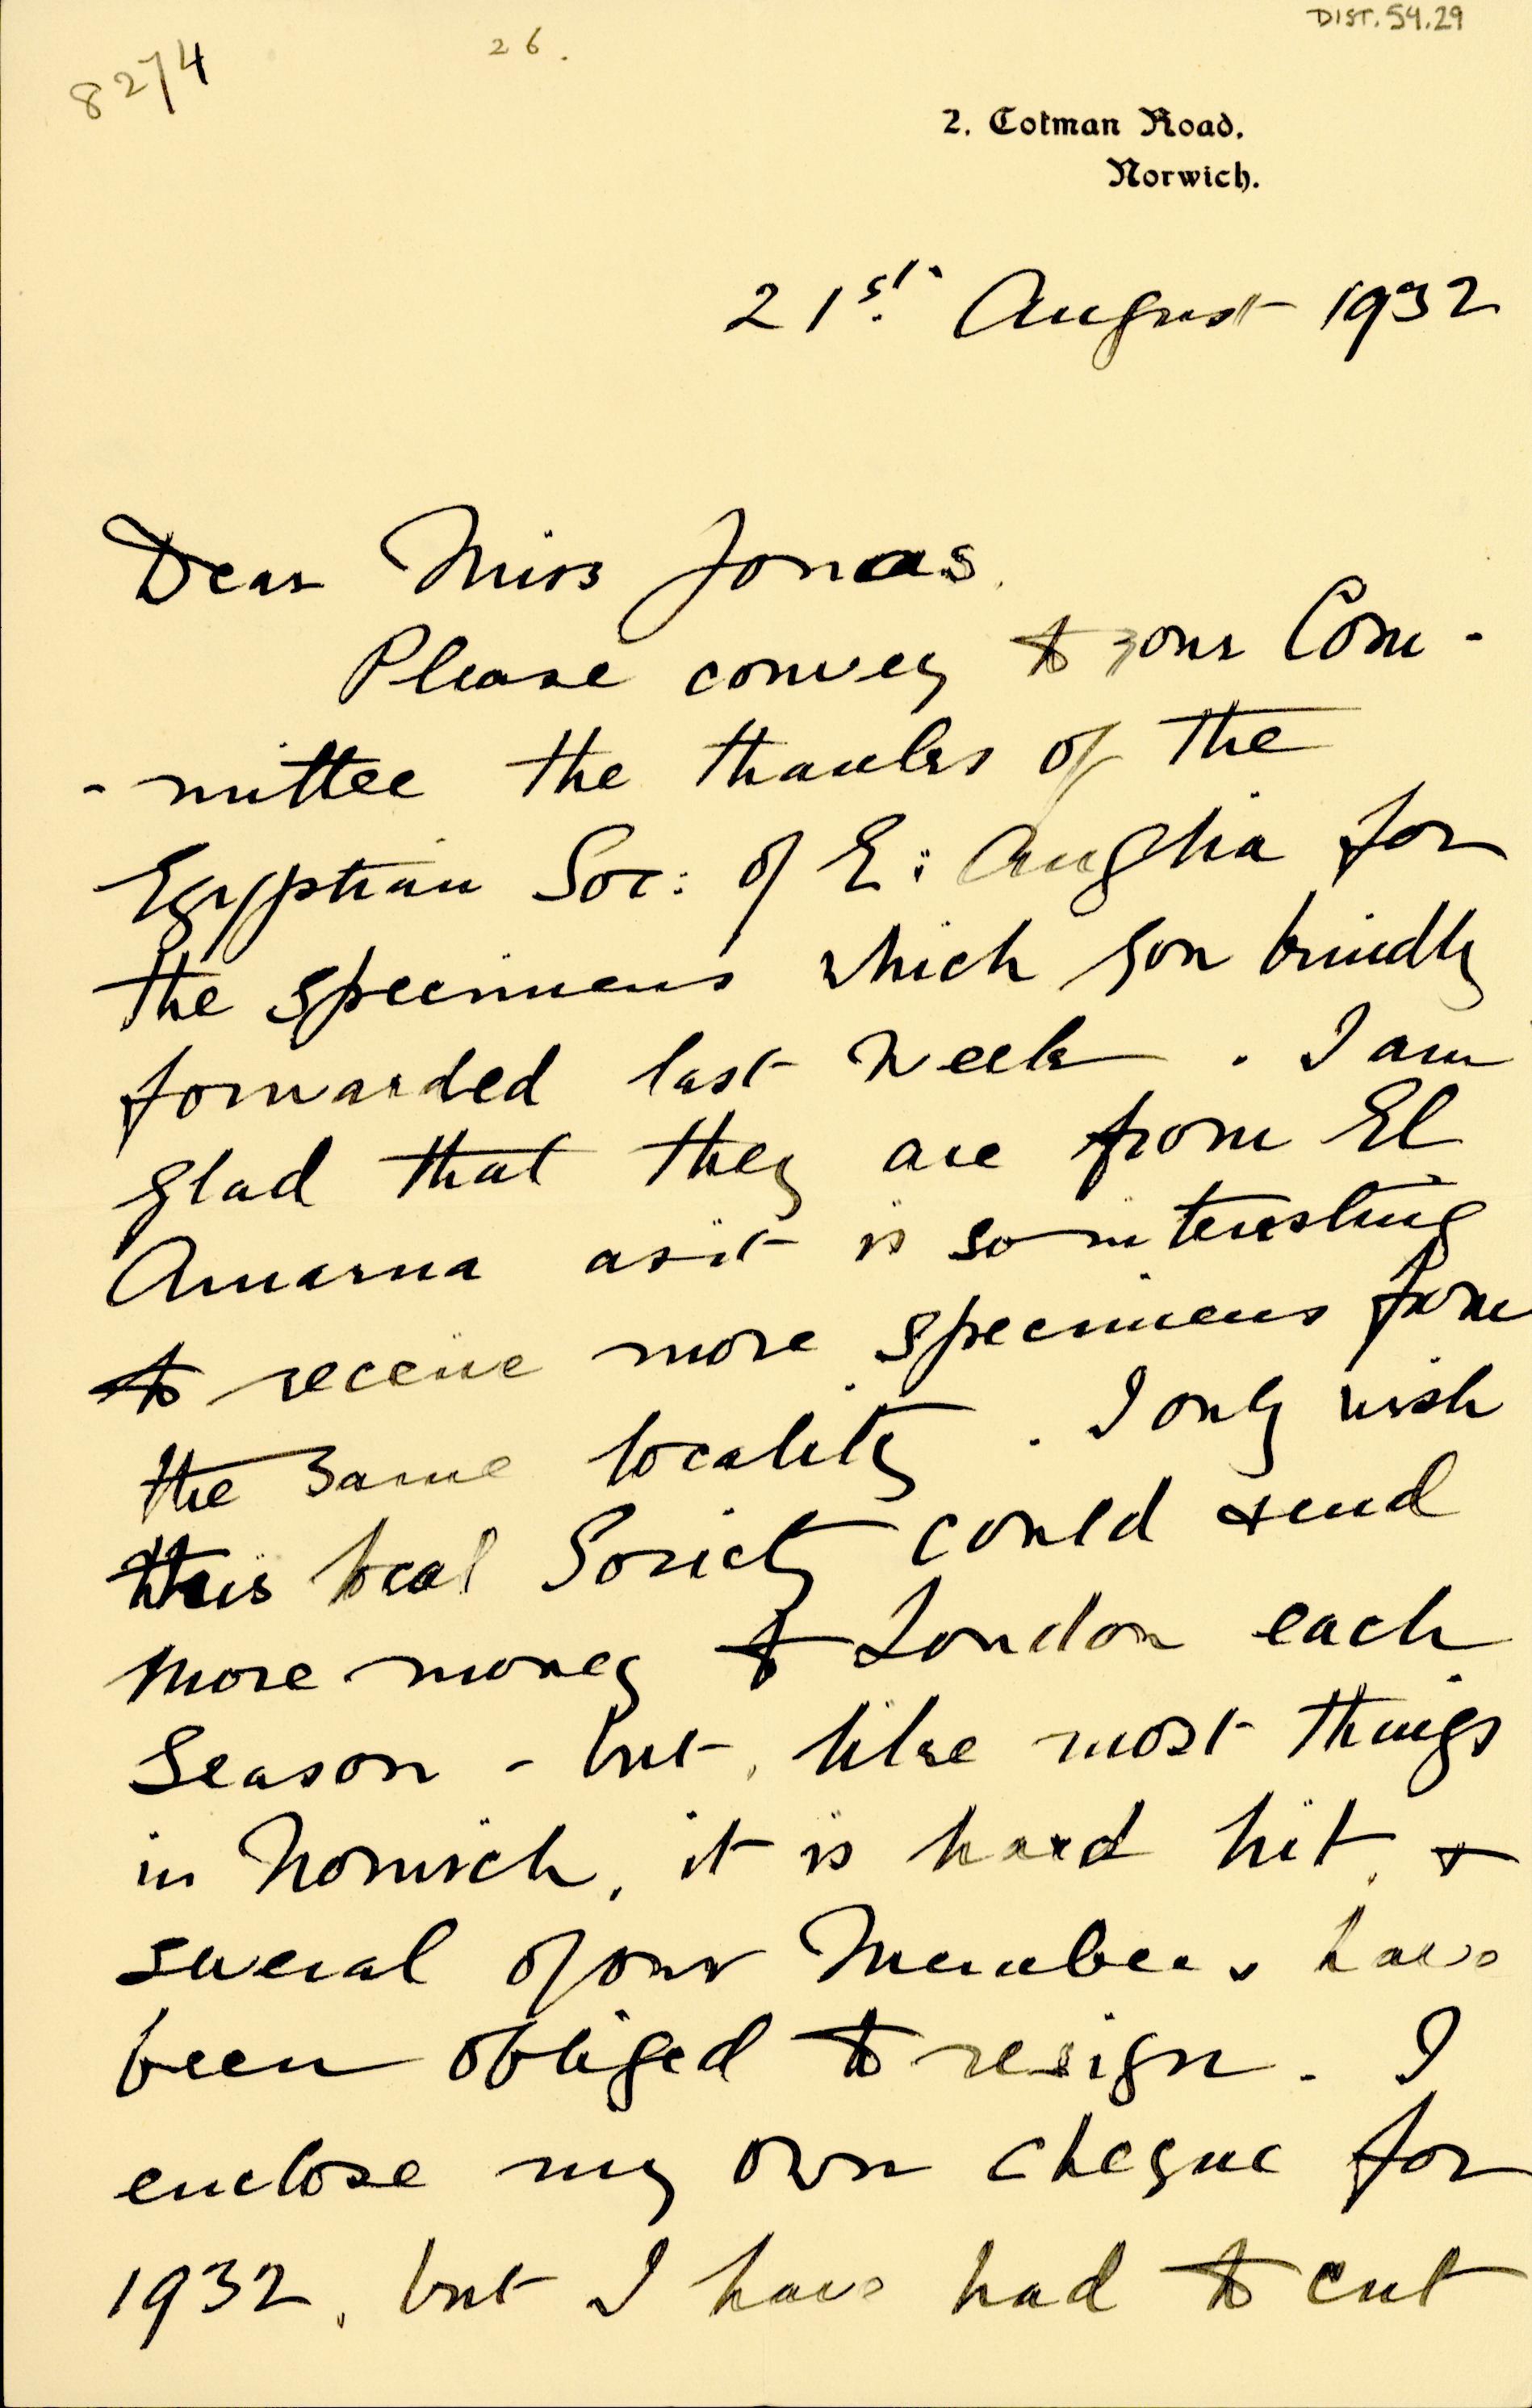 DIST.54.29
8274
26.
2. Cotman Road.
Norwich.
21st. August 1932
Dear Miss Jonas.
Please convey to your Com-
-mittee the thanks of the
Egyptian Soc: of E: Anglia for
the specimens which you kindly
forwarded last week. I am
glad that they are from El
Amarna as it is so interesting
to receive more specimens from
the same locality. I only wish
this local Society could send
more money to London each
Season - but, like most things
in Norwich, it is hard hit, &
several of our Members have
been obliged to resign. I
enclose my own cheque for
1932, but I have had to cut